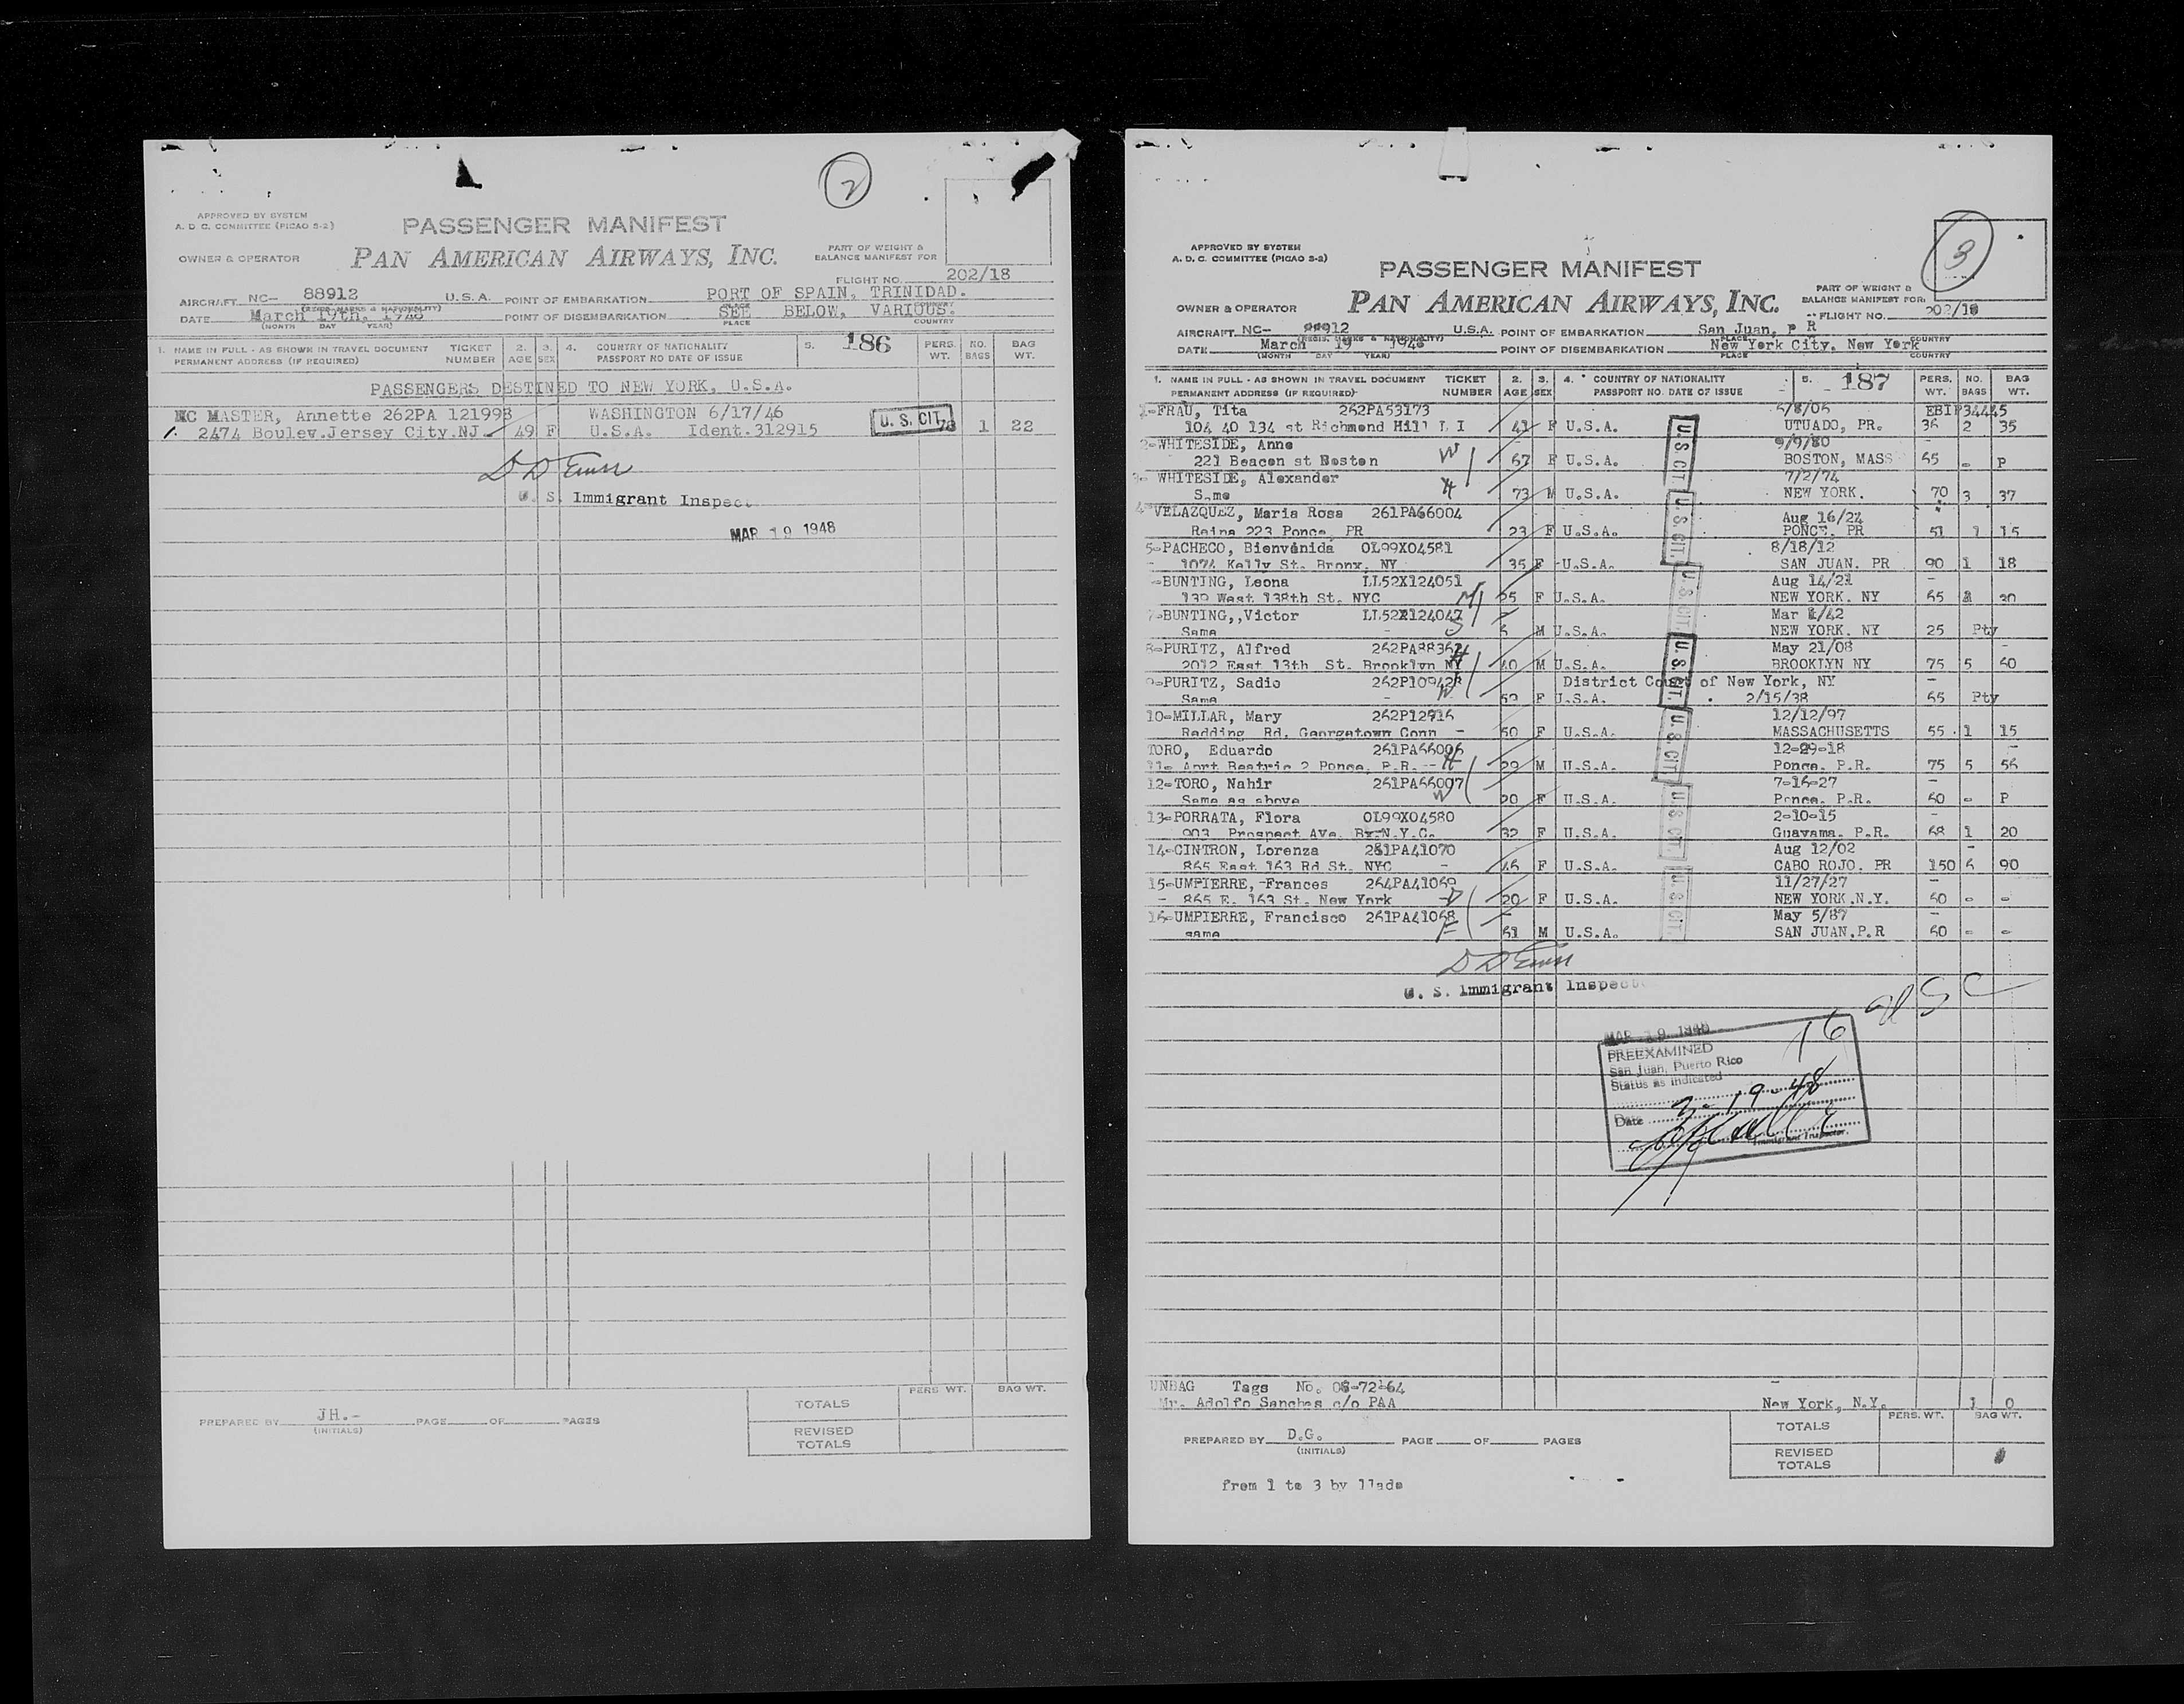 2
APPROVED BY SYSTEM
A. D. C. COMMITTEE (PICAO S-2)
PASSENGER MANIFEST
OWNER & OPERATOR
PAN AMERICAN AIRWAYS, INC.
PART OF WEIGHT &
BALANCE MANIFEST FOR
FLIGHT NO. 202/18
AIRCRAFT NC- 88912 U.S.A. POINT OF EMBARKATION PORT OF SPAIN, TRINIDAD.
(REGIS. MARKS & NATIONALITY) PLACE COUNTRY
DATE March 19th. 1948 POINT OF DISEMBARKATION SEE BELOW, VARIOUS.
(MONTH DAY YEAR) PLACE COUNTRY
1. NAME IN FULL - AS SHOWN IN TRAVEL DOCUMENT TICKET 2. 3. 4. COUNTRY OF NATIONALITY 5. 186 PERS. NO. BAG
PERMANENT ADDRESS (IF REQUIRED) NUMBER AGE SEX PASSPORT NO DATE OF ISSUE WT. BAGS WT.
PASSENGERS DESTINED TO NEW YORK, U.S.A.
MC MASTER, Annette 262PA 121998 WASHINGTON 6/17/46
1. 2474 Boulev.Jersey City.NJ. 49 F U.S.A. Ident.312915 U. S. CIT. 1 22
U. S. Immigrant Inspec
MAR 19 1948
TOTALS
PERS WT. BAG WT.
PREPARED BY JH.- PAGE OF PAGES
(INITIALS)
REVISED
TOTALS
3
APPROVED BY SYSTEM
A. D. C. COMMITTEE (PICAO S-2)
PASSENGER MANIFEST
OWNER & OPERATOR
PAN AMERICAN AIRWAYS, INC.
PART OF WEIGHT &
BALANCE MANIFEST FOR:
FLIGHT NO. 202/18
AIRCRAFT NC- 88912 U.S.A. POINT OF EMBARKATION San Juan, P R
(REGIS. MARKS & NATIONALITY) PLACE COUNTRY
DATE March 19 1948 POINT OF DISEMBARKATION New York City, New York
(MONTH DAY YEAR) PLACE COUNTRY
1. NAME IN FULL - AS SHOWN IN TRAVEL DOCUMENT TICKET 2. 3. 4. COUNTRY OF NATIONALITY 5. 187 PERS. NO. BAG
PERMANENT ADDRESS (IF REQUIRED) NUMBER AGE SEX PASSPORT NO. DATE OF ISSUE WT. BAGS WT.
1-FRAU, Tita 262PA53173 EBIP34445
104 40 134 st Richmond Hill L I 41 F U.S.A. UTUADO, PR. 36 2 35
2-WHITESIDE, Anne 9/9/80
221 Beacon st Boston W 67 F U.S.A. BOSTON, MASS 65 - P
3- WHITESIDE, Alexander 7/2/74
Same H 73 M U.S.A. NEW YORK. 70 3 37
4-VELAZQUEZ, Maria Rosa 261PA66004 Aug 16/24
Reina 223 Ponce, PR 23 F U.S.A. PONCE, PR 51 1 15
5-PACHECO, Bienvenida OL99X04581 8/18/12
1074 Kelly St. Bronx, NY 35 F U.S.A. SAN JUAN. PR 90 1 18
-BUNTING, Leona LL52X124051 Aug 14/21
139 West 138th St. NYC M 25 F U.S.A. NEW YORK. NY 65 30
7-BUNTING,,Victor LL52X124047 Mar
Same S M U.S.A. NEW YORK. NY 25 Pty
8-PURITZ, Alfred H May 21/08
2012 East 13th St. Brooklyn NY 40 M U.S.A. BROOKLYN NY 75 5 60
9-PURITZ, Sadie District Court of New York, NY
Same W F U.S.A. 2/15/38 65 Pty
10-MILLAR, Mary 262P12916 12/12/97
Redding Rd, Georgetown Conn - 50 F U.S.A. MASSACHUSETTS 55 1 15
TORO, Eduardo 261PA66006 12-29-18
11- Aprt Beatriz 2 Ponce, P.R. -- H 29 M U.S.A. Ponce. P.R. 75 5 56
12-TORO, Nahir 261PA66007 7-16-27
Same as above W 20 F U.S.A. Ponce. P.R. 60 - P
13-PORRATA, Flora OL99X04580 2-10-15
903 Prospect Ave. Bx-N.Y.C. 32 F U.S.A. Guayama. P.R. 68 1 20
14-CINTRON, Lorenza 261PA41070 Aug 12/02
865 East 163 Rd St. NYC - 45 F U.S.A. CABO ROJO. PR 150 6 90
15-UMPIERRE,-Frances 264PA41069 11/27/27
- 865 E. 163 St. New York D 20 F U.S.A. NEW YORK.N.Y. 60 - -
16-UMPIERRE, Francisco 261PA41068 May 5/87
same F 61 M U.S.A. SAN JUAN.P.R 60 - -
U. S. CIT.
U. S. CIT.
U. S. CIT.
U. S. CIT.
U. S. CIT.
U. S. CIT.
U. S. CIT.
U. S. Immigrant Inspect
16 USC
MAR 19 1948
PREEXAMINED
San Juan, Puerto Rico
Status as indicated
Date 3-19-48
Immigrant Inspector.
UNBAG Tags No.
Mr. Adolfo Sanches c/o PAA New York, N.Y. 1 0
TOTALS
PERS. WT. BAG WT.
PREPARED BY D.G. PAGE OF PAGES
(INITIALS)
REVISED
TOTALS
from 1 to 3 by llade